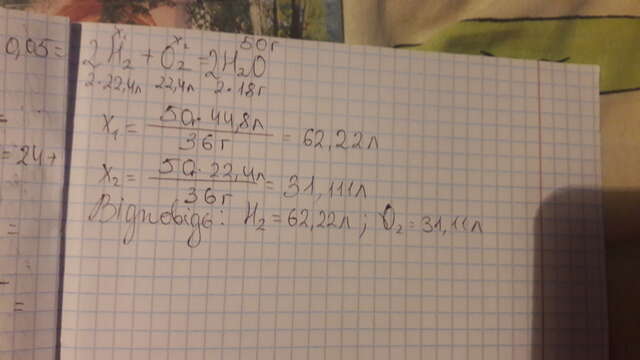 0,05 =
= 24+
=
=
x₁ x₂ 50г
2H₂ + O₂ = 2H₂O
2·22,4л 22,4л 2·18г
x₁ = 50·44,8л / 36г = 62,22л
x₂ = 50·22,4л / 36г = 31,111л
Відповідь: H₂ = 62,22л; O₂ = 31,11л